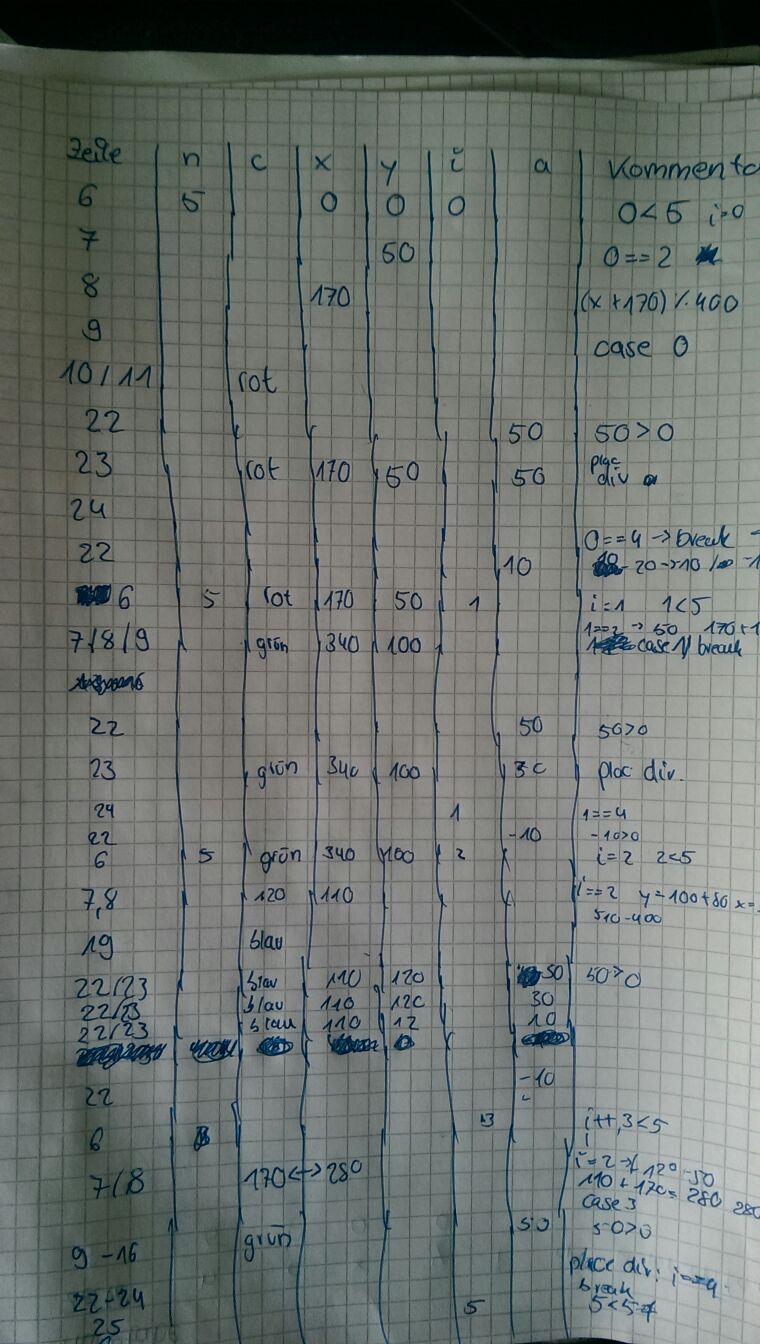 Zeile n c x y i a Kommenta
6 5 0 0 0 0<5 i=0
7 50 0==2
8 170 (x+170)%400
9 case 0
10/11 rot
22 50 50>0
23 rot 170 50 50 div a
24 0==4 → break
22 10 20→10
6 5 rot 170 50 1 i=1 1<5
7/8/9 grün 340 100 1==2 → 50 170+1
case 1/ break
22 50 50>0
23 grün 340 100 30 plac div.
24 1 1==4
22 -10 -10>0
6 5 grün 340 100 2 i=2 2<5
7,8 120 110 i==2 y=100+80 x=
510-400
19 blau
22/23 blau 110 120 50 50>0
22/23 blau 110 120 30
22/23 blau 110 12 10
22 -10
6 3 i++, 3<5
7/8 170<->280 i=2 120-50
110+170=280 280
case 3
9-16 grün 50 50>0
place div: i==4
22-24 break
25 5 5<5